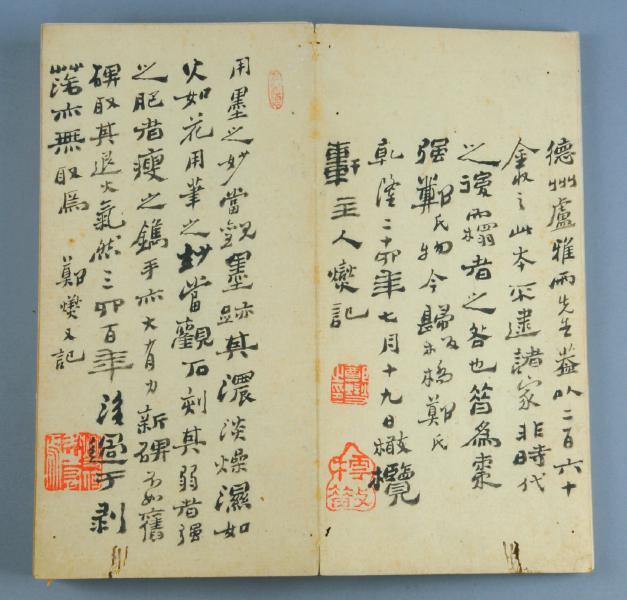 德州盧雅雨先生益以二百六十
金收之此本不逮諸家非時代
之後而搨者之咎也昔為棗
强鄭氏物今歸板橋鄭氏
乾隆二十四年七月十九日橄欖
軒主人燮記
用墨之妙當觀墨跡其濃淡燥濕如
火如花用筆之妙當觀石刻其弱者强
之肥者瘦之鐫手亦大有力新碑不如舊
碑取其退火氣然三四百年後過于剥
落亦無取焉 鄭燮又記